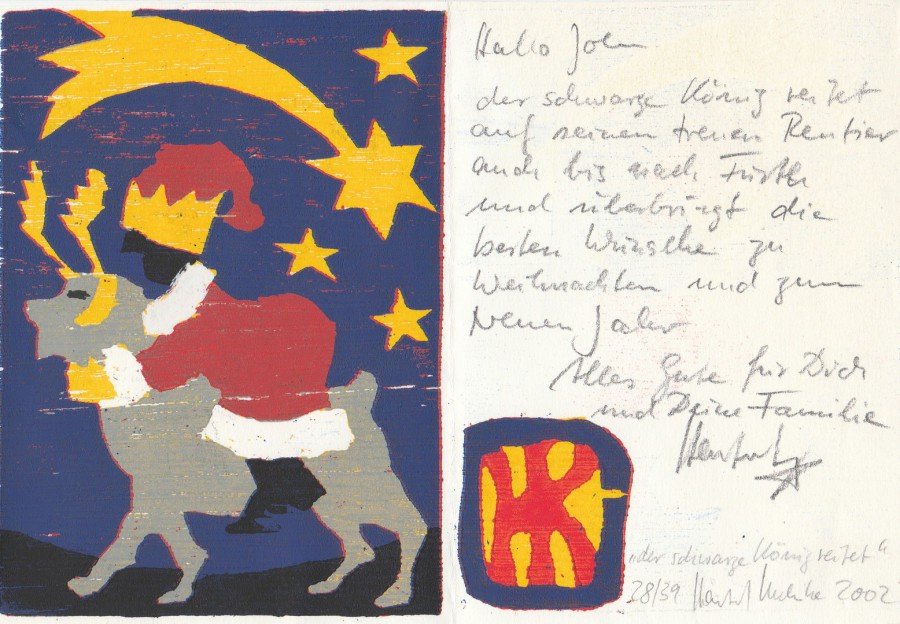 Hallo John
der schwarze König reitet
auf seinem treuen Rentier
auch bis nach Fürth
und überbringt die
besten Wünsche zu
Weihnachten und zum
Neuen Jahr
Alles Gute für Dich
und Deine Familie
HK
„der schwarze König reitet“
28/39 2002